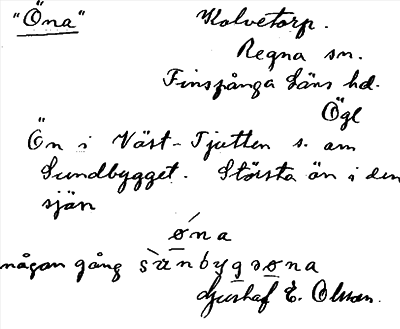 "Öna"
Kolvetorp.
Regna sn.
Finspånga Läns hd.
Ögl
Ön i Väst-Tjutten s. om
Sundbygget. Största ön i den
sjön
ǿna
någon gång
Gustaf E. Olsson.